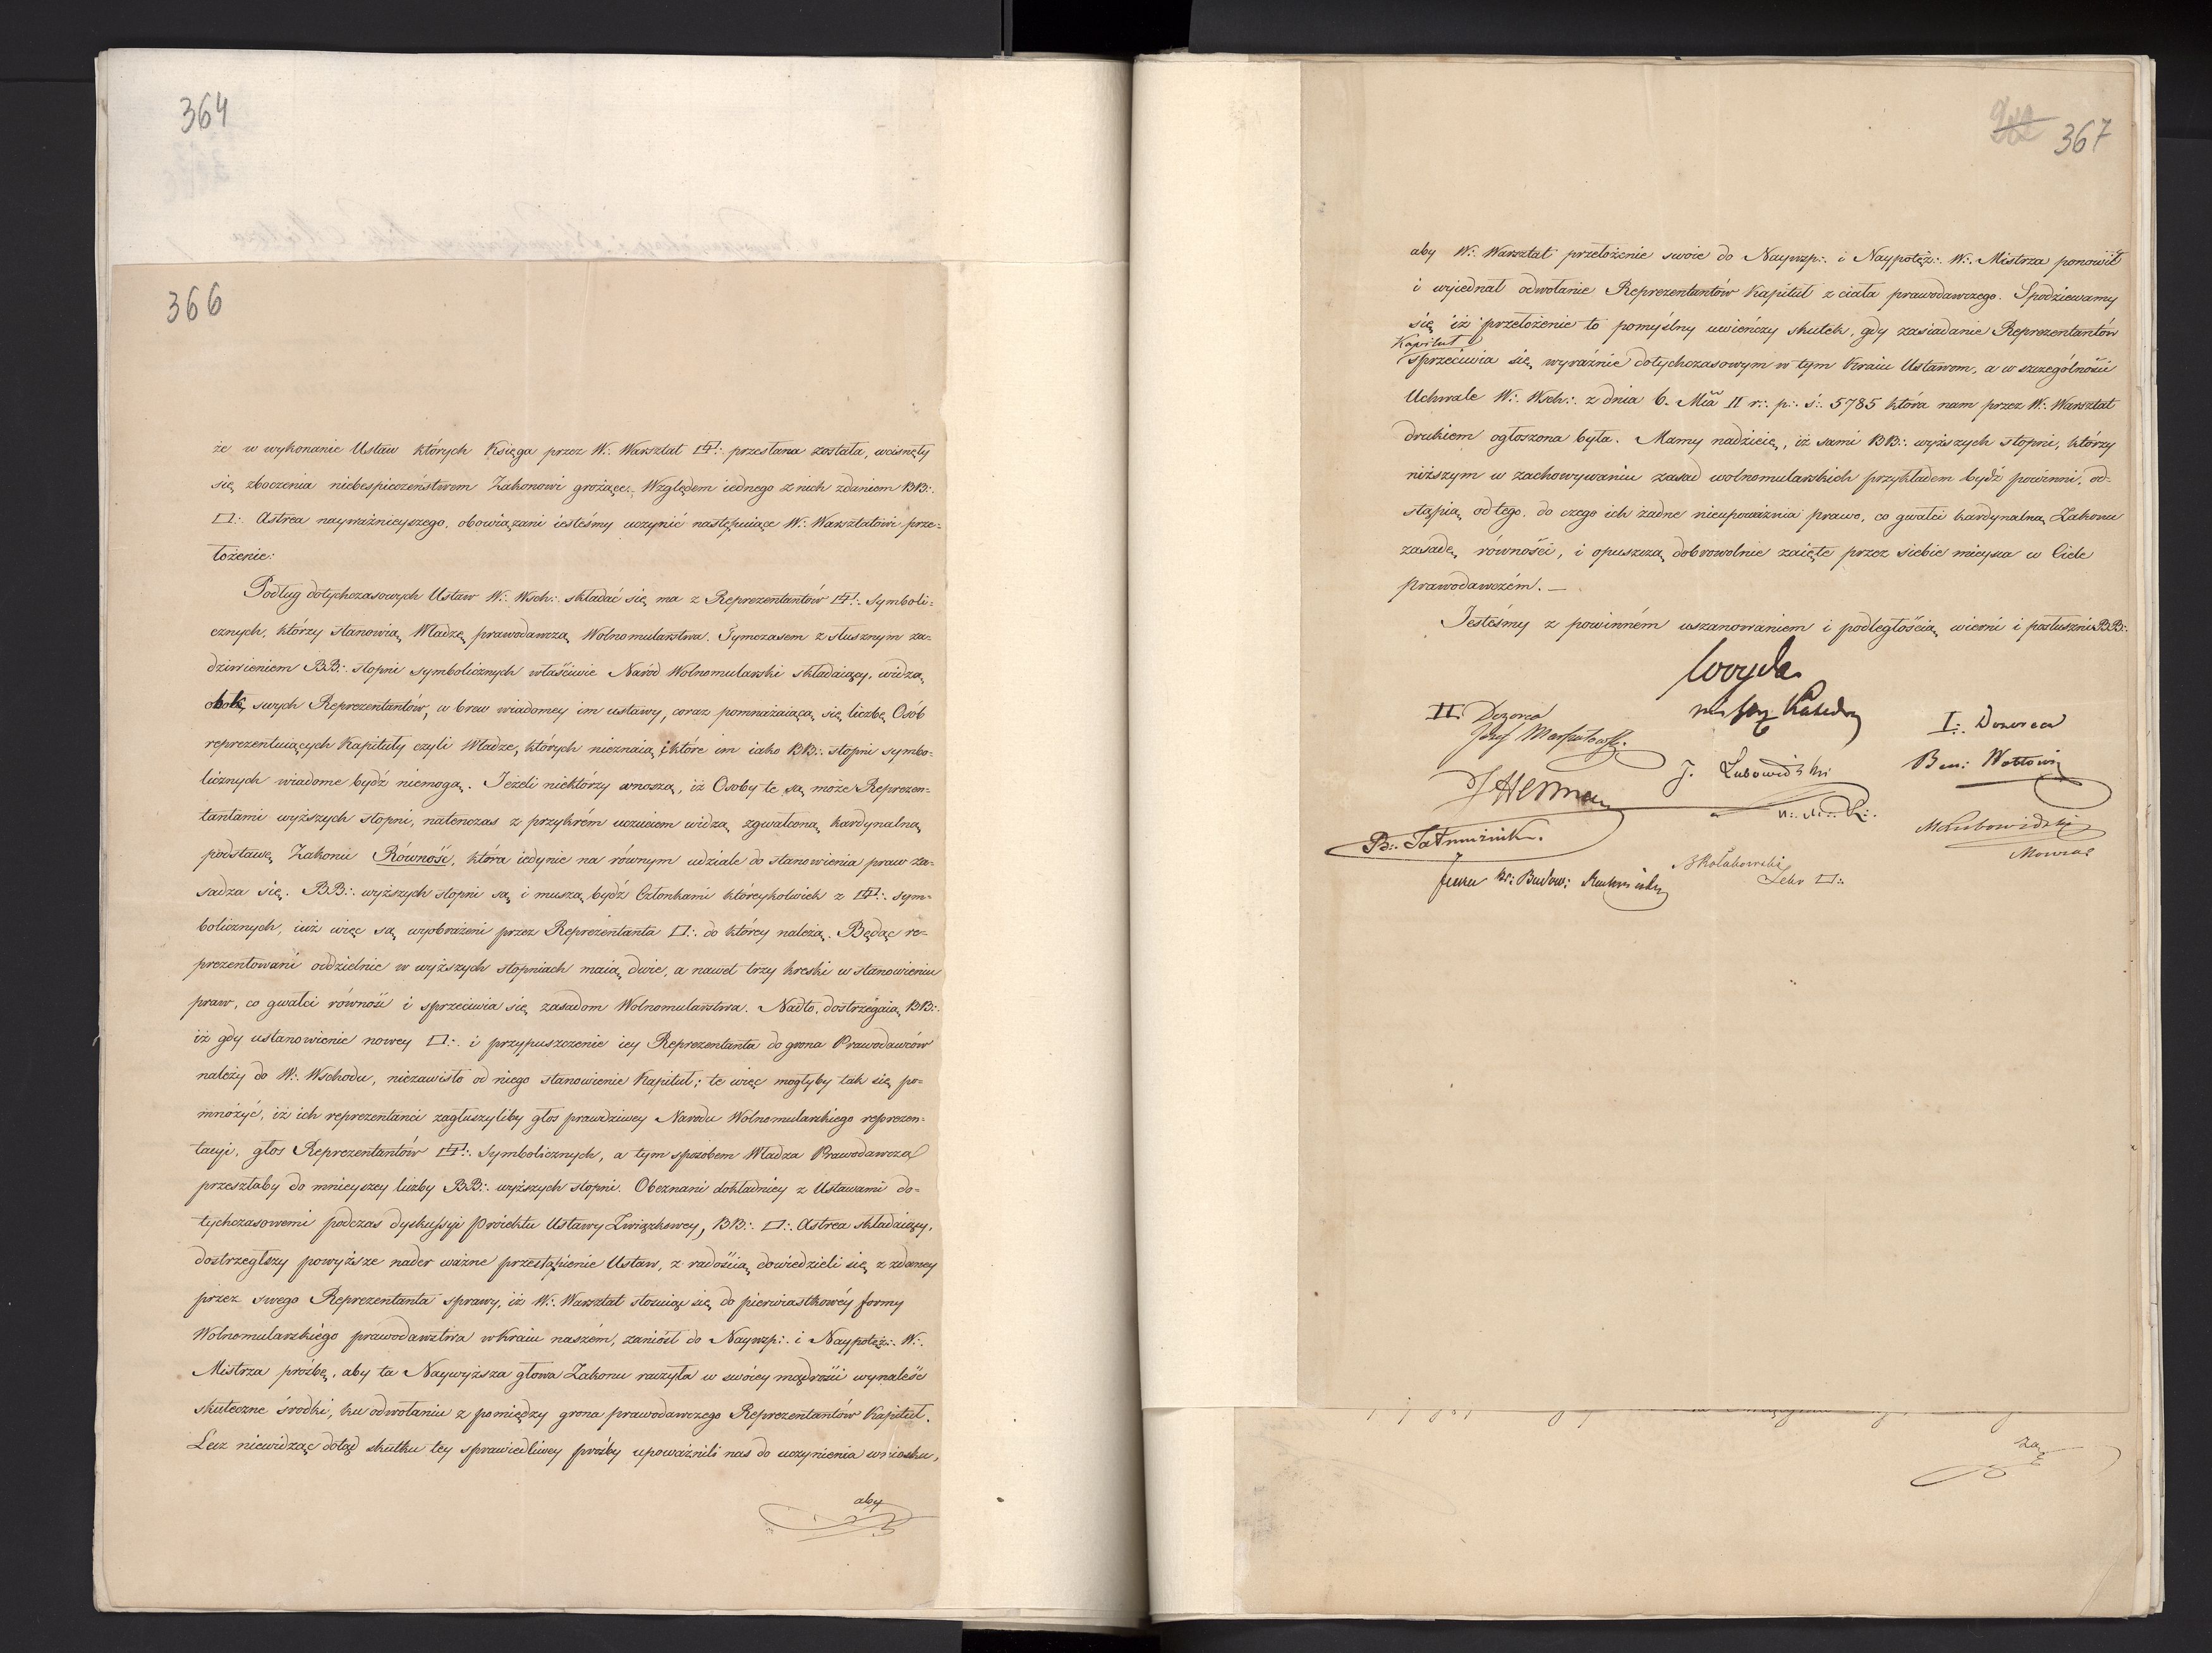 364
366
że w wykonanie Ustaw których Księga przez W∴ Warsztat ▭∴ przesłana została, wcisnęły
się zboczenia niebespieczeństwem Zakonowi grożące. Względem iednego z nich zdaniem BB∴
▭∴ Astrea nayważnieyszego, obowiązani iesteśmy uczynić następuiące W∴ Warsztatowi prze=
łożenie:
Podług dotychczasowych Ustaw W∴ Wsch∴ składać się ma z Reprezentantów ▭∴ Symboli=
cznych, którzy stanowią Władzę prawodawczą Wolnomularstwa. Tymczasem z słusznym za=
dziwieniem BB∴ stopni symbolicznych właściwie Naród Wolnomularski składaiący, widzą
obok swych Reprezentantów, w brew wiadomey im ustawy, coraz pomnażaiącą się liczbę Osób
reprezentuiących Kapituły czyli Władze, których nieznaią i które im iako BB∴ stopni symbo=
licznych wiadome bydź niemogą. Jeżeli niektórzy wnoszą, iż Osoby te są może Reprezen=
tantami wyższych stopni, natenczas z przykrém uczuciem widzą zgwałconą kardynalną
podstawę Zakonu Równość, która iedynie na równym udziale do stanowienia praw za=
sadza się. BB∴ wyższych stopni są i muszą bydź Członkami któreykolwiek z ▭∴ sym=
bolicznych, iuż więc są wyobrażeni przez Reprezentanta ▭∴ do którey należą. Będąc re=
prezentowani oddzielnie w wyższych stopniach maią dwie, a nawet trzy kreski w stanowieniu
praw, co gwałci równość i sprzeciwia się zasadom Wolnomularstwa. Nadto, dostrzegaią BB∴
iż gdy ustanowienie nowey ▭∴ i przypuszczenie iey Reprezentanta do grona Prawodawców
należy do W∴ Wschodu, niezawisło od niego stanowienie Kapituł; te więc mogłyby tak się po=
mnożyć, iż ich reprezentanci zagłuszyliby głos prawdziwey Narodu Wolnomularskiego reprezen=
tacyi, głos Reprezentantów ▭∴ Symbolicznych, a tym sposobem Władza Prawodawcza
przeszłaby do mnieyszey liczby BB∴ wyższych stopni. Obeznani dokładniey z Ustawami do=
tychczasowemi podczas dyskussyi Proiektu Ustawy Związkowey, BB∴ ▭∴ Astrea składaiący,
dostrzegłszy powyższe nader ważne przestąpienie Ustaw, z radością dowiedzieli się z zdaney
przez swego Reprezentanta sprawy, iż W∴ Warsztat stosuiąc się do pierwiastkowéy formy
Wolnomularskiego prawodawstwa w Kraiu naszém, zaniósł do Naywsp∴ i Naypotęż∴ W∴
Mistrza prośbę, aby ta Naywyższa głowa Zakonu raczyła w swoiey mądrości wynaleść
skuteczne środki, ku odwołaniu z pomiędzy grona prawodawczego Reprezentantów Kapituł.
Lecz niewidząc dotąd skutku tey sprawiedliwey prośby upoważnili nas do uczynienia wniosku,
aby
367
aby W∴ Warsztat przełożenie swoie do Naywsp∴ i Naypotęż∴ W∴ Mistrza ponowił
i wyiednał odwołanie Reprezentantów Kapituł z ciała prawodawczego. Spodziewamy
się iż przełożenie to pomyślny uwieńczy skutek, gdy zasiadanie Reprezentantów
Kapituł
sprzeciwia się wyraźnie dotychczasowym w tym Kraiu Ustawom, a w szczególności
Uchwale W∴ Wsch∴ z dnia 6. Mca II r∴ p∴ ś∴ 5785 która nam przez W∴ Warsztat
drukiem ogłoszona była. Mamy nadzieię, iż sami BB∴ wyższych stopni, którzy
niższym w zachowywaniu zasad wolnomularskich przykładem bydź powinni, od=
stąpią od tego, do czego ich żadne nieupoważnia prawo, co gwałci kardynalną Zakonu
zasadę równości, i opuszczą dobrowolnie zaięte przez siebie mieysca w Ciele
prawodawczém. —
Jesteśmy z powinném uszanowaniem i podległością wierni i posłuszni BB∴
Woyda
mistrz Katedry
II. Dozorca
Józef
I∴ Dozorca
J. Lubowidzki
Herman
M Lubowidzki
Mowca
B∴
Budow∴
Sekr ▭∴
za